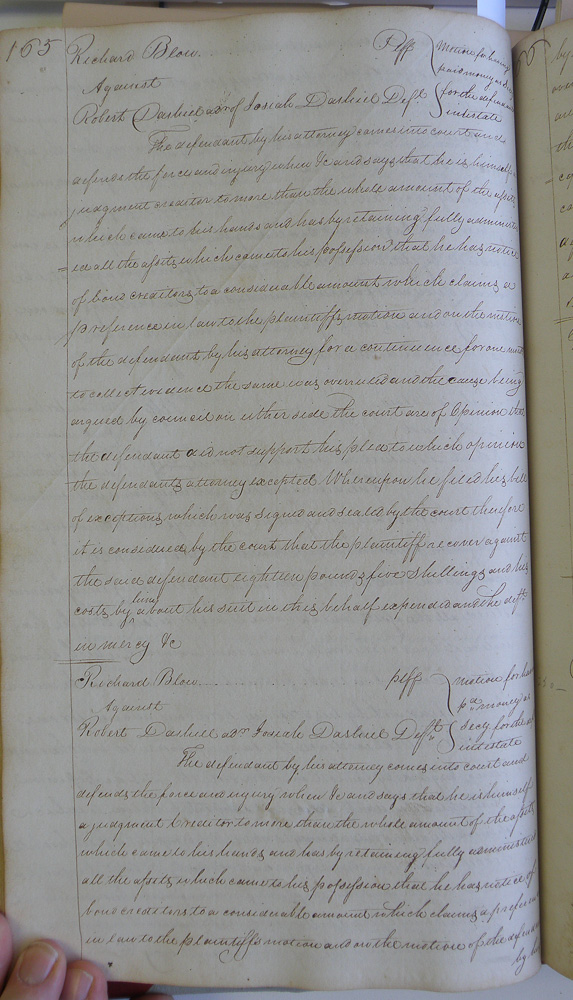 165
Richard Blow .. Plff Motion for having
Against paid money as Secy
Robert Dashiel adr of Josiah Dashiel Deft. for the defendants
intestate
The defendant by his attorney comes into court and
defends the force and injury when &c and says that he is himself a
judgment creditor to more than the whole amount of the assets
which came to his hands and has by retaining fully administer
=ed all the assets which came to his possession that he has notice
of bond creditors to a considerable amount which claims a
preference in law to the plaintiffs motion and on the motion
of the defendant by his attorney for a contenuence for one
to collect evidence the same was overruled and the cause being
argued by council on either side the court are of Opinion that
the defendant did not support his plea to which opinion
the defendants attorney excepted Whereupon he filed his bill
of exceptions which was Signed and sealed by the court therefore
it is considered by the court that the plaintiff recover against
the said defendant eighteen pounds five Shillings and his
costs by him about his suit in this behalf expended and the deft.
in mercy &c
Richard Blow .... plff motion for having
Against pd money as
Robert Dashiell adr Josiah Dashiel Deft Secy for the
intestate
The defendant by his attorney comes into court and
defends the force and injury when &c and says that he is himself
a judgment Creditor to more than the whole amount of the assets
which came to his hands and has by retaining fully administered
all the assets which came to his possession that he has notice of
bond creditors to a considerable amount which claims a preference
in law to the plaintiffs motion and on the motion of the defendant
by his